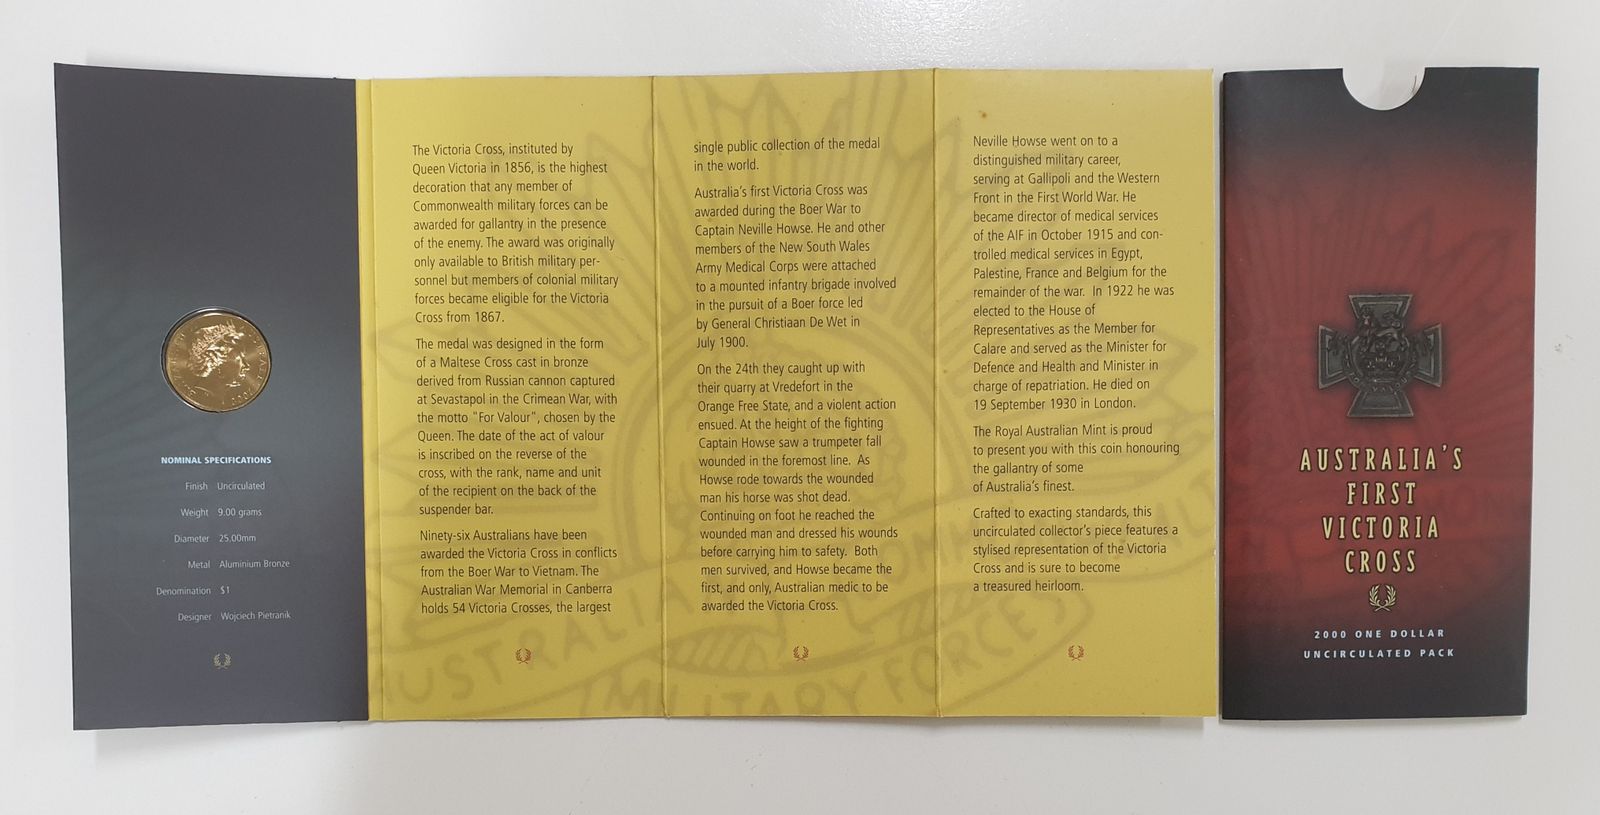 NOMINAL SPECIFICATIONS
Finish Uncirculated
Weight 9.00 grams
Diameter 25.00mm
Metal Aluminium Bronze
Denomination $1
Designer Wojciech Pietranik
The Victoria Cross, instituted by
Queen Victoria in 1856, is the highest
decoration that any member of
Commonwealth military forces can be
awarded for gallantry in the presence
of the enemy. The award was originally
only available to British military per-
sonnel but members of colonial military
forces became eligible for the Victoria
Cross from 1867.
The medal was designed in the form
of a Maltese Cross cast in bronze
derived from Russian cannon captured
at Sevastapol in the Crimean War, with
the motto "For Valour", chosen by the
Queen. The date of the act of valour
is inscribed on the reverse of the
cross, with the rank, name and unit
of the recipient on the back of the
suspender bar.
Ninety-six Australians have been
awarded the Victoria Cross in conflicts
from the Boer War to Vietnam. The
Australian War Memorial in Canberra
holds 54 Victoria Crosses, the largest
single public collection of the medal
in the world.
Australia's first Victoria Cross was
awarded during the Boer War to
Captain Neville Howse. He and other
members of the New South Wales
Army Medical Corps were attached
to a mounted infantry brigade involved
in the pursuit of a Boer force led
by General Christiaan De Wet in
July 1900.
On the 24th they caught up with
their quarry at Vredefort in the
Orange Free State, and a violent action
ensued. At the height of the fighting
Captain Howse saw a trumpeter fall
wounded in the foremost line. As
Howse rode towards the wounded
man his horse was shot dead.
Continuing on foot he reached the
wounded man and dressed his wounds
before carrying him to safety. Both
men survived, and Howse became the
first, and only, Australian medic to be
awarded the Victoria Cross.
Neville Howse went on to a
distinguished military career,
serving at Gallipoli and the Western
Front in the First World War. He
became director of medical services
of the AIF in October 1915 and con-
trolled medical services in Egypt,
Palestine, France and Belgium for the
remainder of the war. In 1922 he was
elected to the House of
Representatives as the Member for
Calare and served as the Minister for
Defence and Health and Minister in
charge of repatriation. He died on
19 September 1930 in London.
The Royal Australian Mint is proud
to present you with this coin honouring
the gallantry of some
of Australia's finest.
Crafted to exacting standards, this
uncirculated collector's piece features a
stylised representation of the Victoria
Cross and is sure to become
a treasured heirloom.
AUSTRALIA
MILITARY FORCES
AUSTRALIA'S
FIRST
VICTORIA
CROSS
2000 ONE DOLLAR
UNCIRCULATED PACK